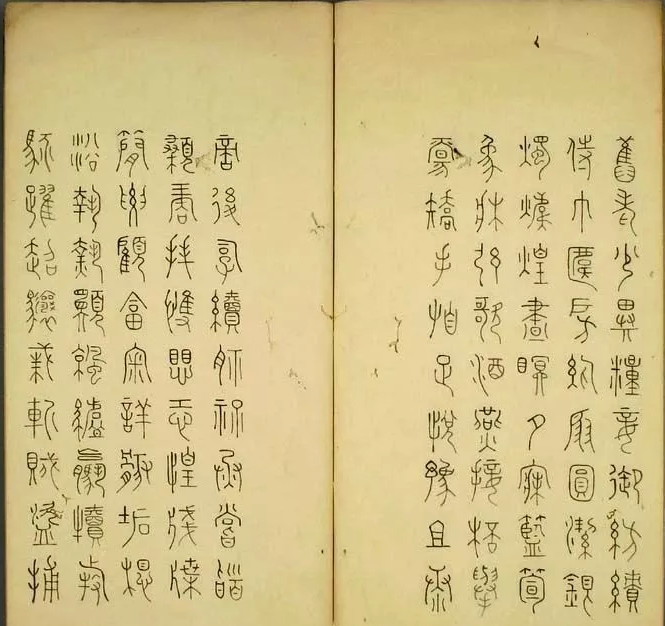 舊老少異糧妾御紡績
侍巾帷房紈扇圓潔銀
燭煒煌晝瞑夕寐籃筍
象牀弦歌酒燕接桮舉
觴矯手足悅豫且康
嫡後嗣續祭祀烝嘗稽
顙再拜悚懼恐惶牋牒
簡要顧答審詳骸垢想
浴執熱願涼驢騾犢特
駭躍超驤誅斬賊盜捕